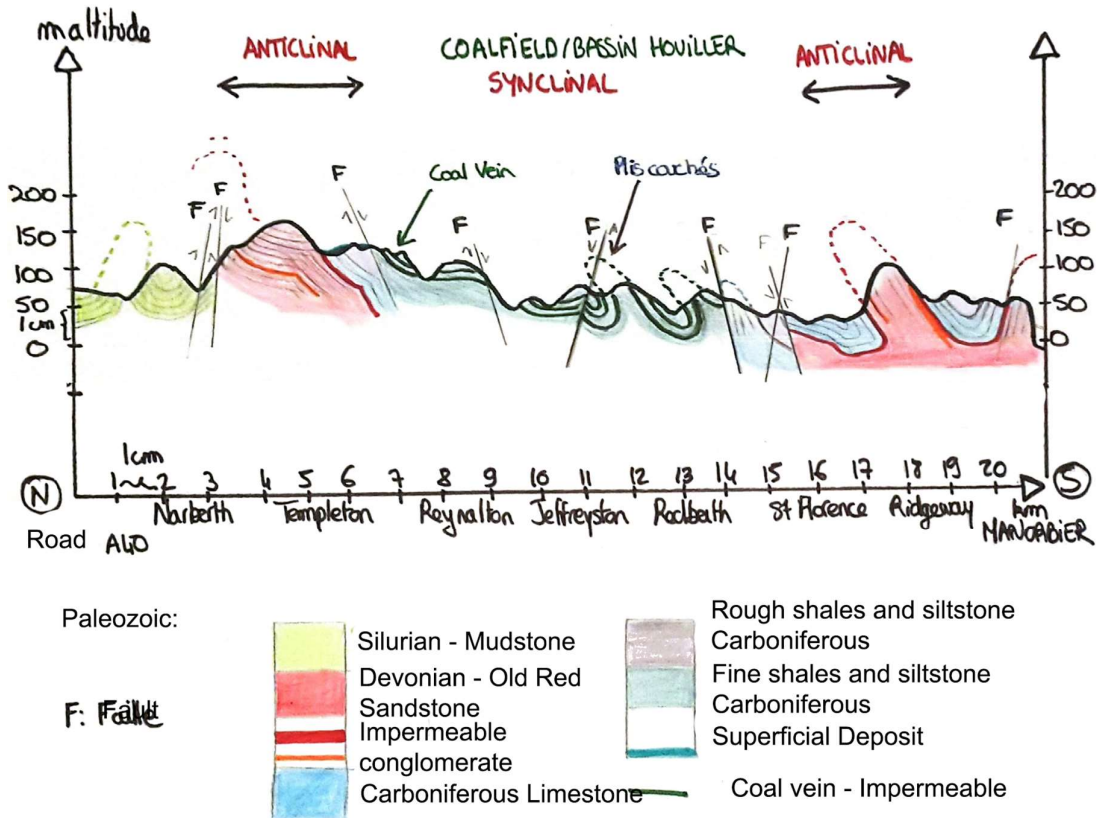 maltitude
ANTICLINAL
COALFIELD/BASSIN HOUILLER
SYNCLINAL
ANTICLINAL
Coal Vein
Plis couchés
F
F
F
F
F
F
F
F
F
200
150
100
50
1cm
0
200
150
100
50
0
1cm
N
1 2 3 4 5 6 7 8 9 10 11 12 13 14 15 16 17 18 19 20
S
km
Narberth Templeton Reynalton Jeffreyston Redberth St Florence Ridgeway
MANORBIER
Road A40
Paleozoic:
F:
Silurian - Mudstone
Devonian - Old Red
Sandstone
Impermeable
conglomerate
Carboniferous Limestone
Rough shales and siltstone
Carboniferous
Fine shales and siltstone
Carboniferous
Superficial Deposit
Coal vein - Impermeable